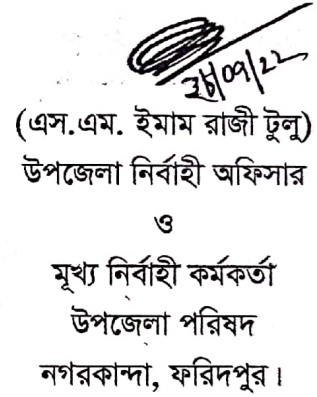 ২৮/০৭/২২
(এস.এম. ইমাম রাজী টুলু)
উপজেলা নির্বাহী অফিসার
ও
মূখ্য নির্বাহী কর্মকর্তা
উপজেলা পরিষদ
নগরকান্দা, ফরিদপুর।